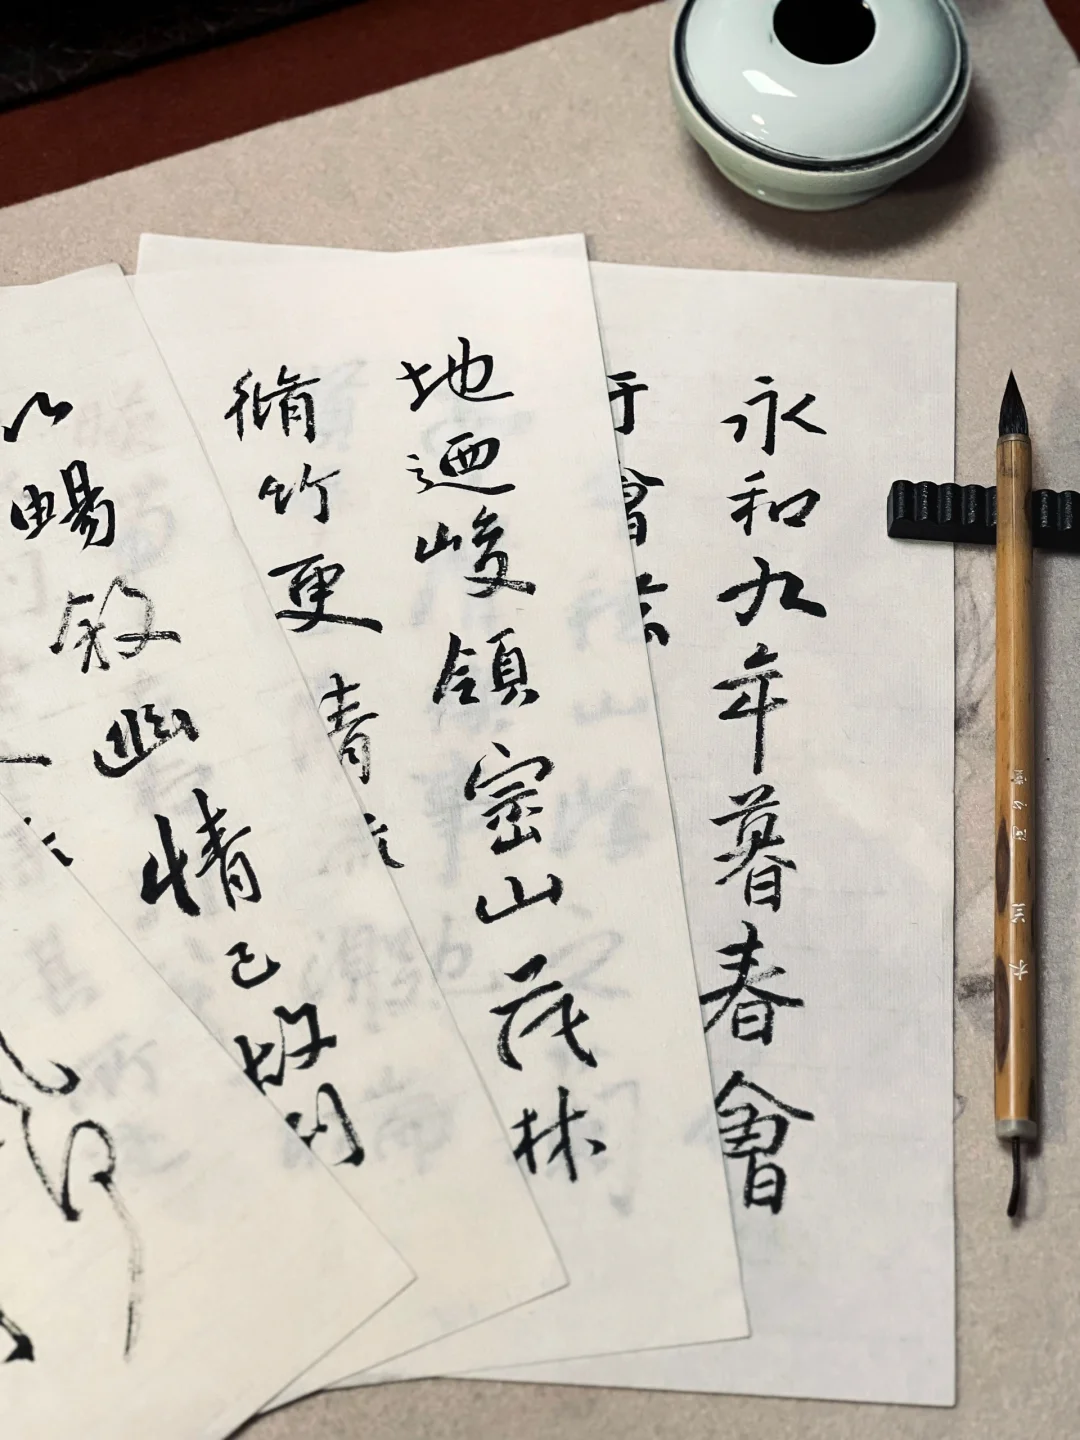 永和九年暮春會
于會
地迺峻領崇山茂林
脩竹更清
以暢敘幽情已故列